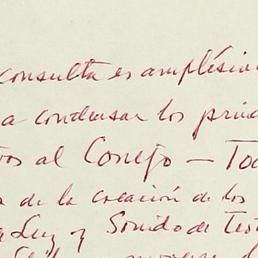 consulta es amplísi
a condensar los prin
os al Consejo — To
de la creación de los
Luz y Sonido de Teo